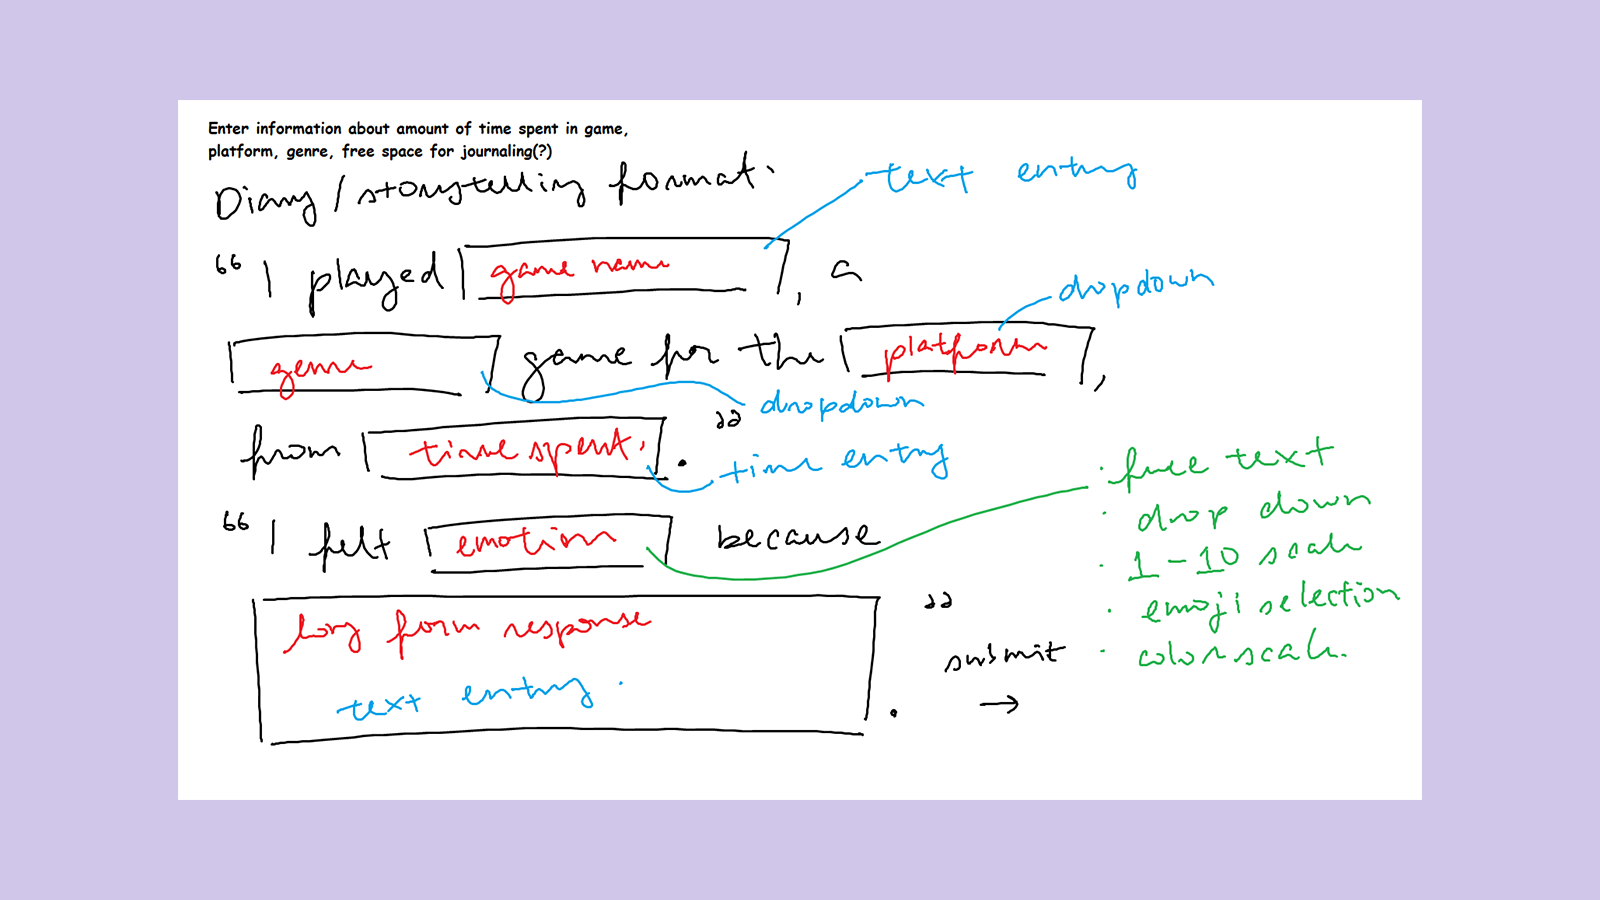 Enter information about amount of time spent in game,
platform, genre, free space for journaling(?)
Diary / storytelling format.
text entry
"I played game name, a
dropdown
genre game for the platform,
dropdown
from time spent. . "
time entry
"I felt emotion because
long form response
text entry.
. "
submit
→
· free text
· drop down
· 1-10 scale
· emoji selection
· color scale.